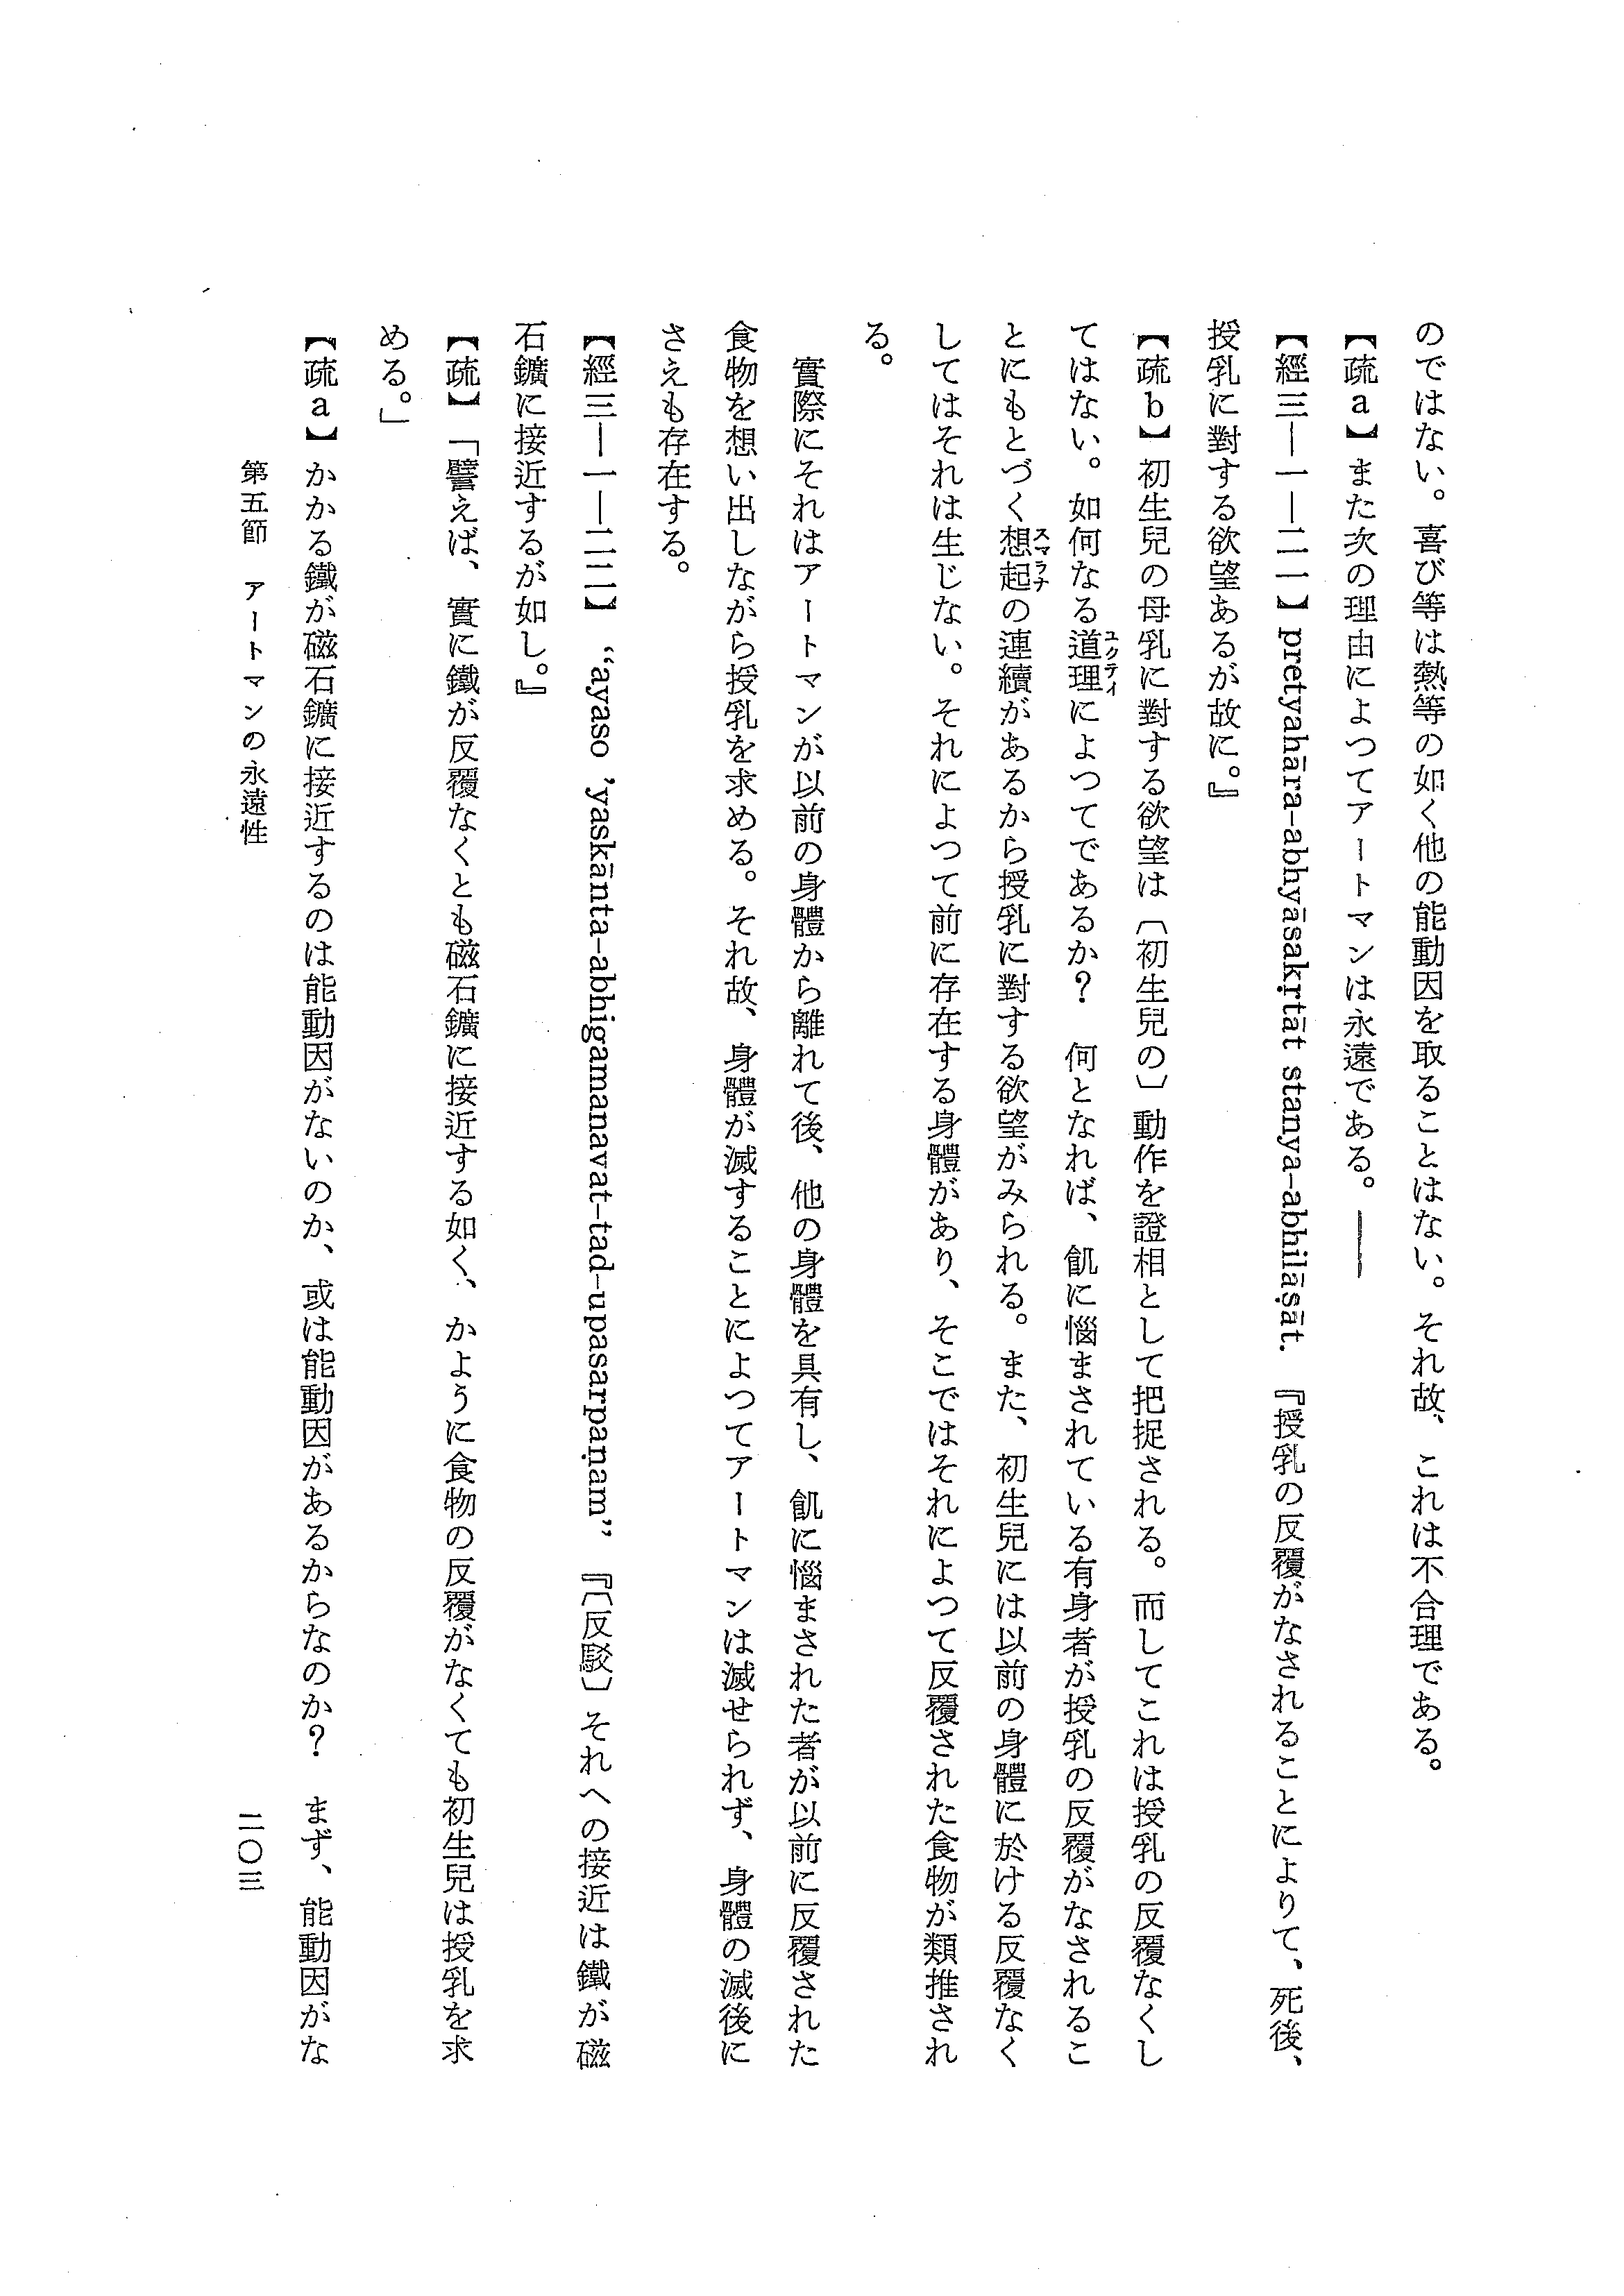 のではない。喜び等は熱等の如く他の能動因を取ることはない。それ故、これは不合理である。
【疏a】また次の理由によつてアートマンは永遠である。――
【經三―一―二一】pretyahāra-abhyāsakṛtāt stanya-abhilāṣāt. 『授乳の反覆がなされることによりて、死後、
授乳に對する欲望あるが故に。』
【疏b】初生兒の母乳に對する欲望は〔初生兒の〕動作を證相として把捉される。而してこれは授乳の反覆なくし
てはない。如何なる道理ユクティによつてであるか？　何となれば、飢に惱まされている有身者が授乳の反覆がなされるこ
とにもとづく想起スマラナの連續があるから授乳に對する欲望がみられる。また、初生兒には以前の身體に於ける反覆なく
してはそれは生じない。それによつて前に存在する身體があり、そこではそれによつて反覆された食物が類推され
る。
實際にそれはアートマンが以前の身體から離れて後、他の身體を具有し、飢に惱まされた者が以前に反覆された
食物を想い出しながら授乳を求める。それ故、身體が滅することによつてアートマンは滅せられず、身體の滅後に
さえも存在する。
【經三―一―二二】“ayaso 'yaskānta-abhigamanavat-tad-upasarpaṇam” 『〔反駁〕それへの接近は鐵が磁
石鑛に接近するが如し。』
【疏】「譬えば、實に鐵が反覆なくとも磁石鑛に接近する如く、かように食物の反覆がなくても初生兒は授乳を求
める。」
【疏a】かかる鐵が磁石鑛に接近するのは能動因がないのか、或は能動因があるからなのか？　まず、能動因がな
第五節　アートマンの永遠性
二〇三